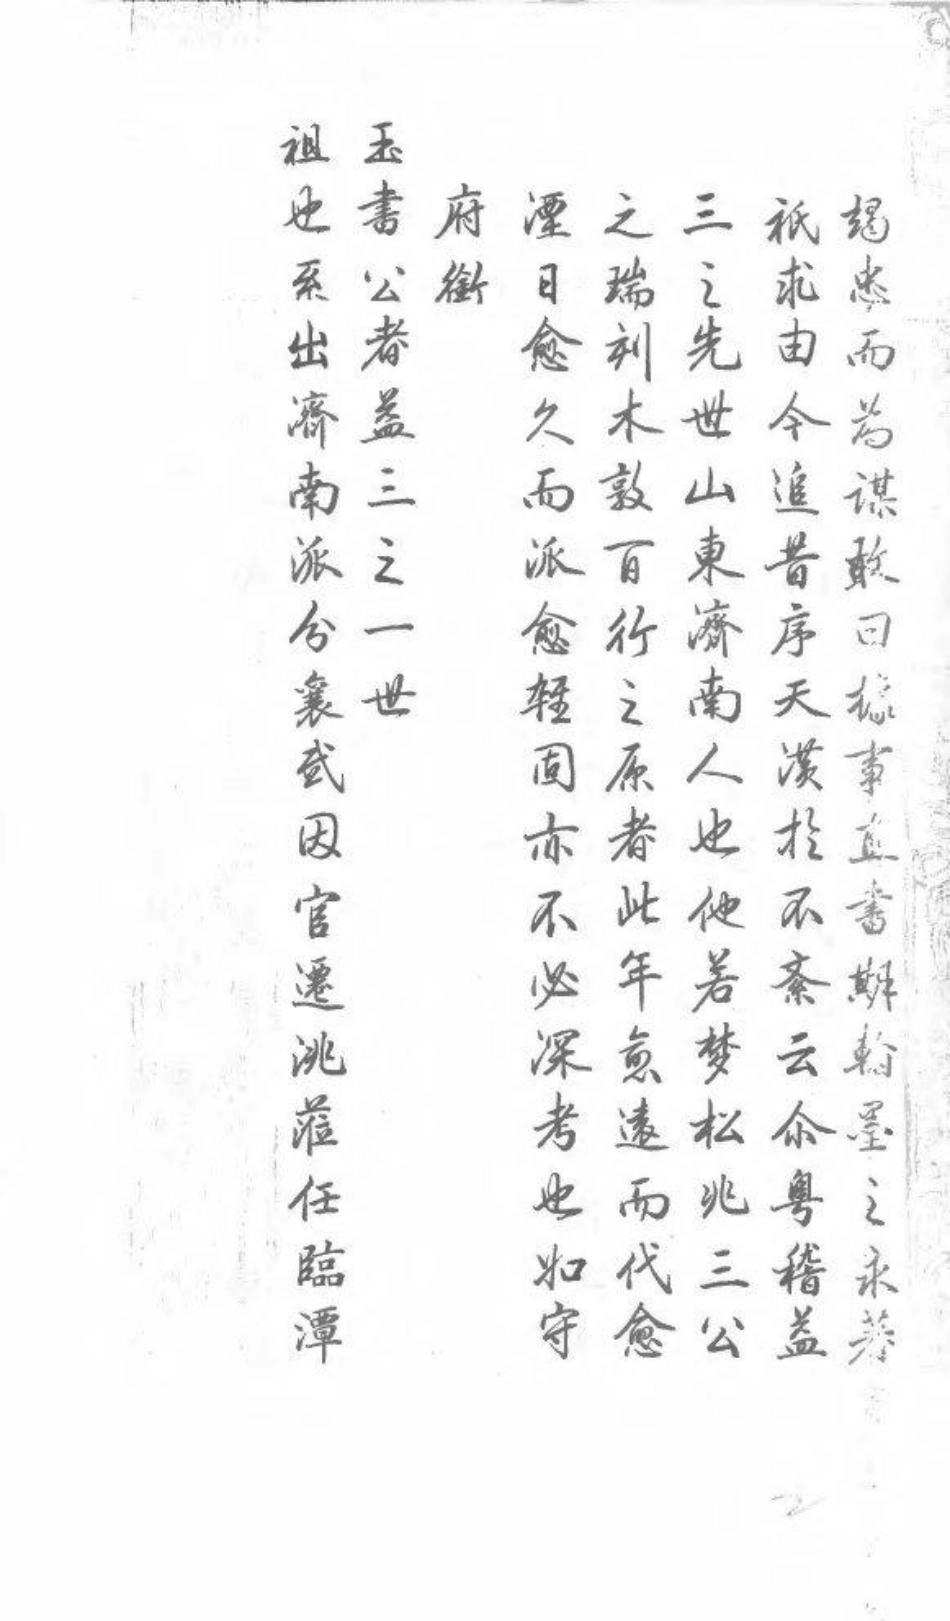 竭忠而為謀敢曰據事直書期翰墨之永葆
祇求由今追昔序天潢於不紊云尒粵稽益
三之先世山東濟南人也他若夢松兆三公
之瑞刻木敦百行之原者此年愈遠而代愈
湮日愈久而派愈輕固亦不必深考也如守
府銜
玉書公者益三之一世
祖也系出濟南派分襄武因官遷洮蒞任臨潭